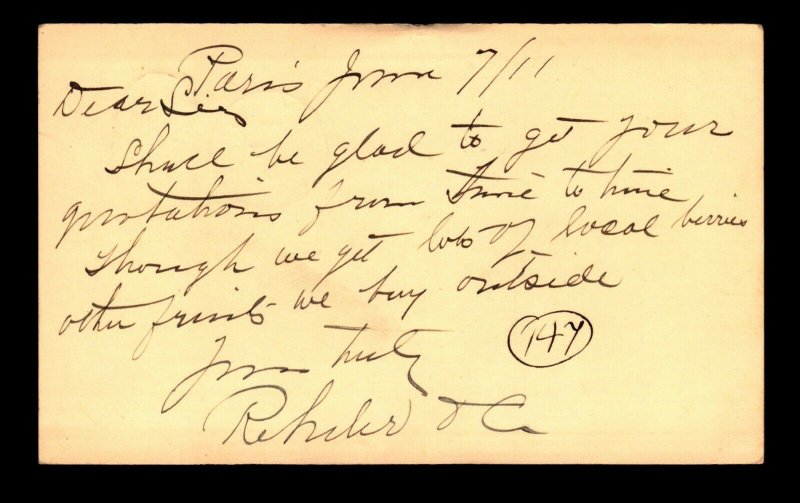 Paris June 7/11
Dear Sirs
Shall be glad to get your
quotations from time to time
though we get lots of local berries
other fruits we buy outside
Yours truly
& Co
147